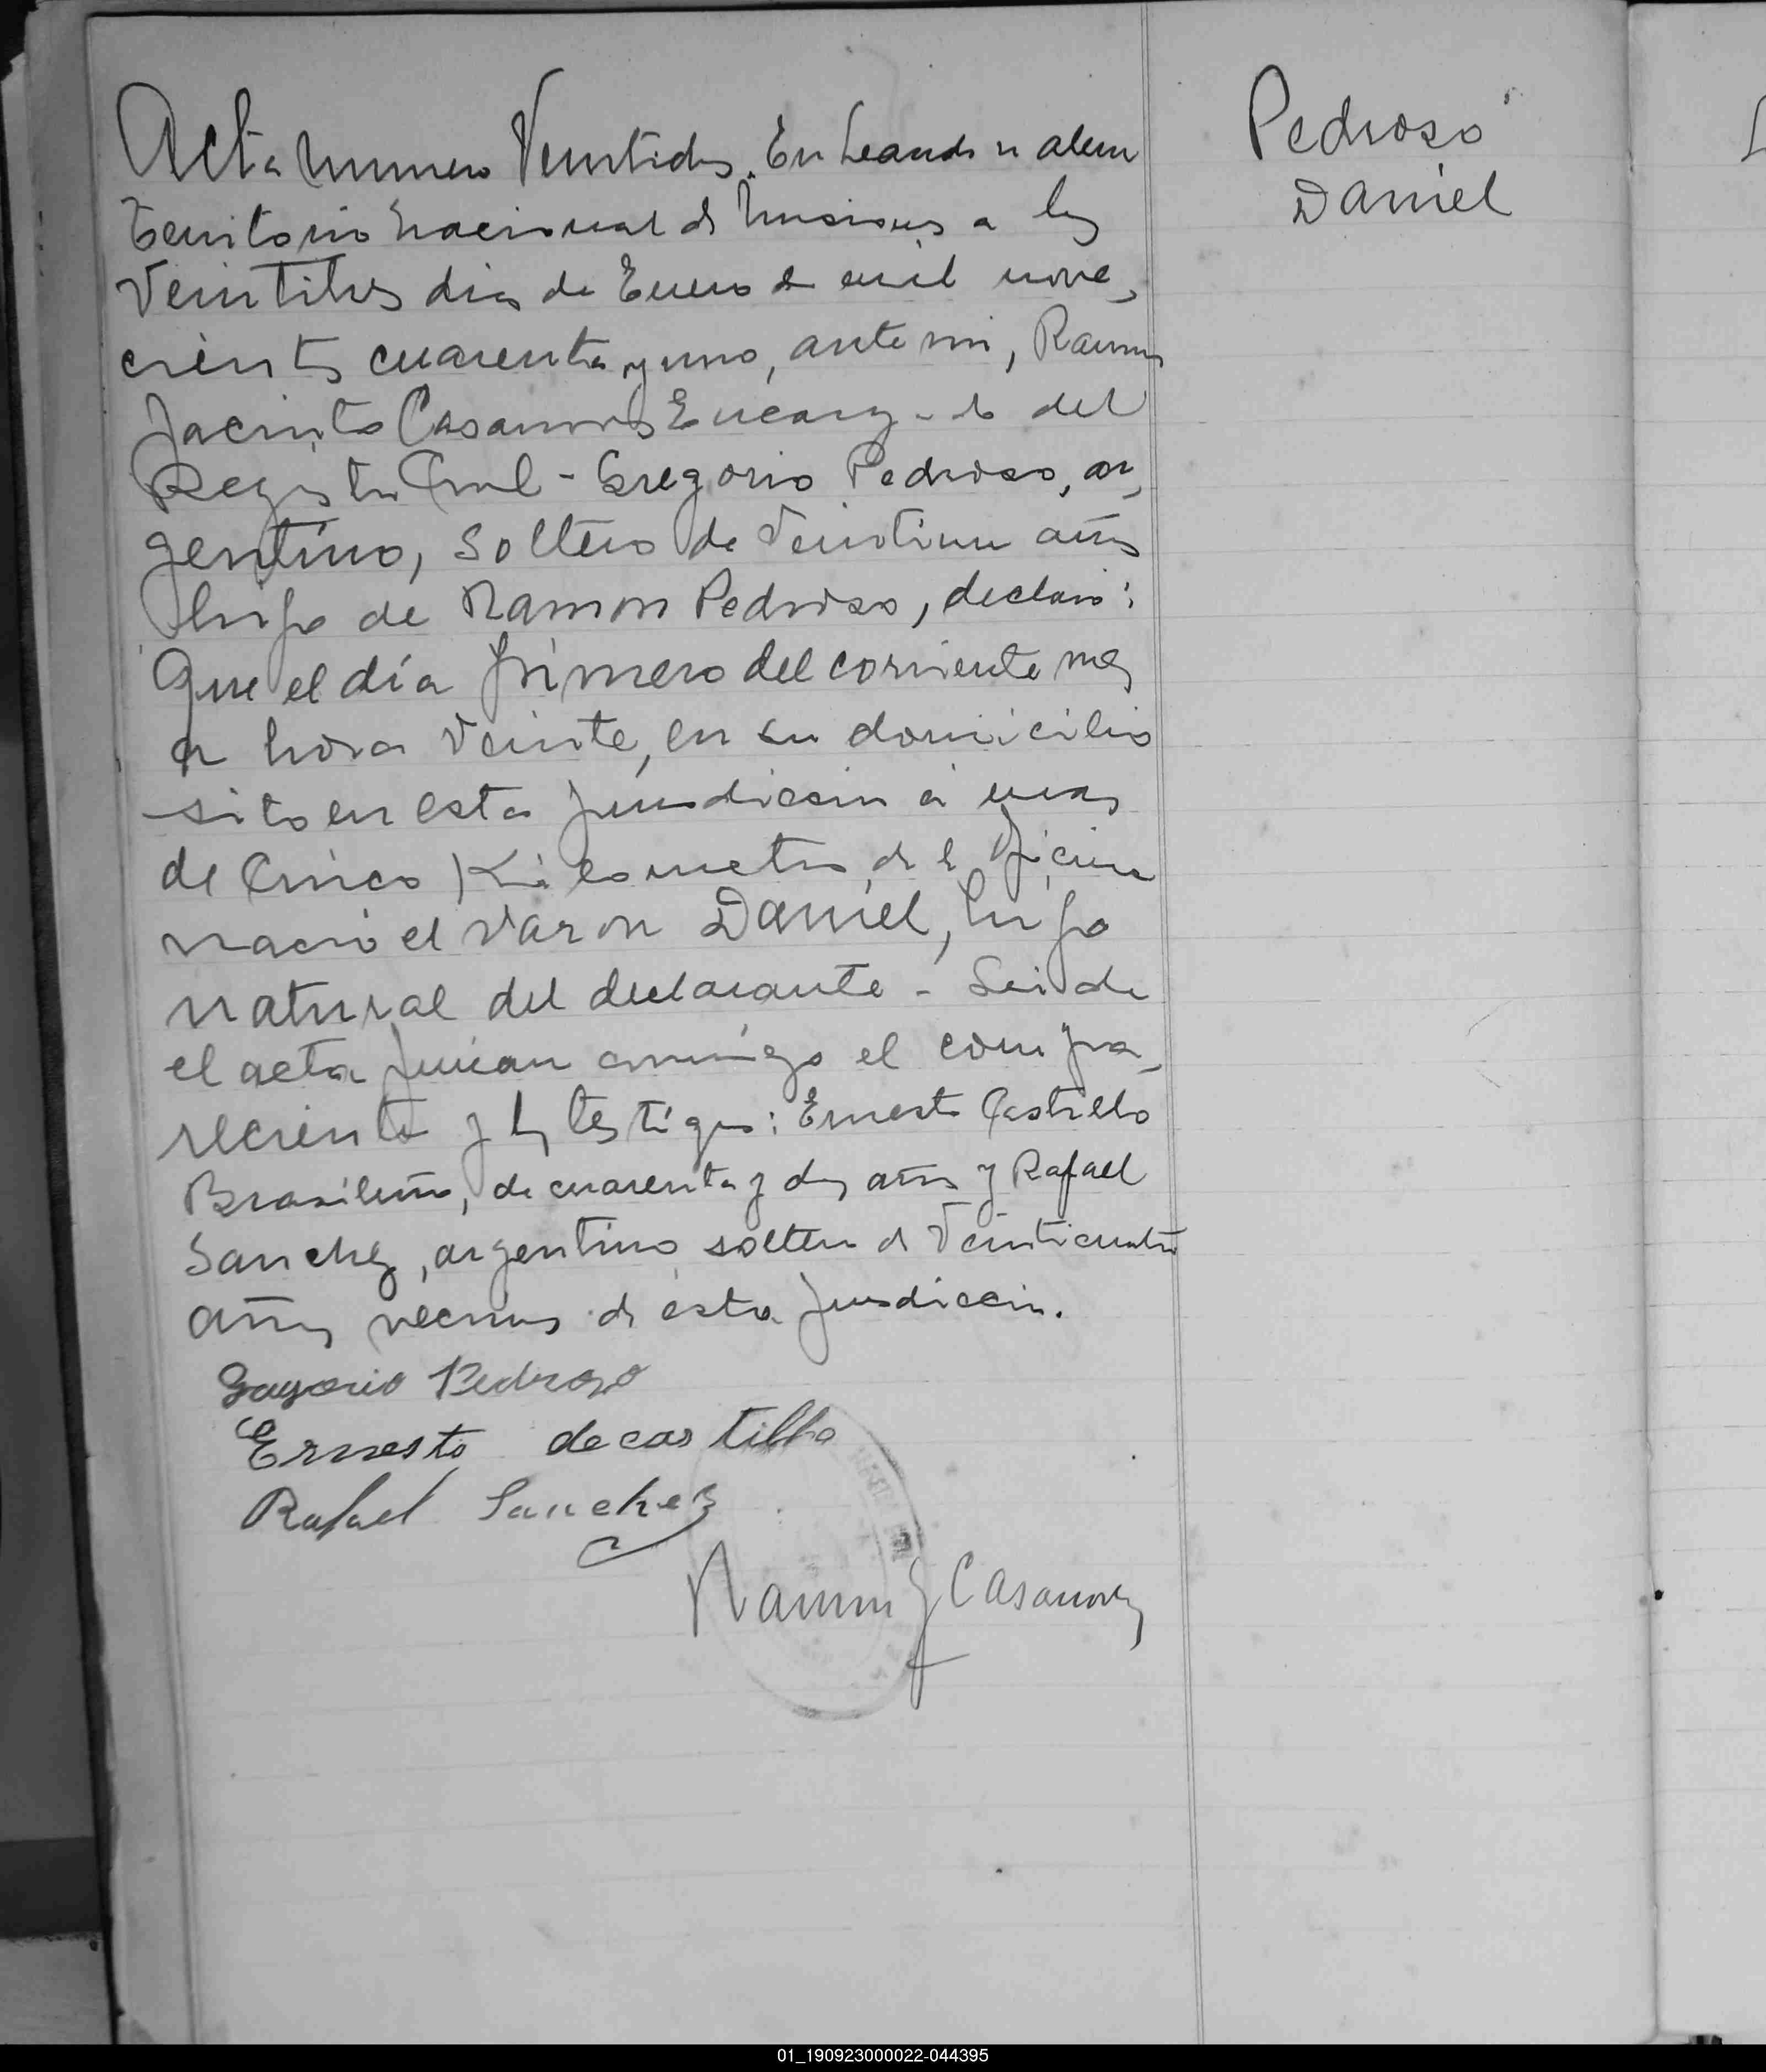 Acta numero Veintidos. En Leandro n alem
Territorio nacional de Misiones a los
Veintitres dias de Enero de mil nove,
cientos cuarenta y uno, ante mi, Ramon
Jacinto Casanova Encargado del
Registro Civil - Gregorio Pedroso, ar,
gentino, soltero de Veintiun años
hijo de Ramon Pedroso, declaro:
Que el día primero del corriente mes
a hora veinte, en su domicilio
sito en esta jurisdiccion a mas
de Cinco Kilometros de la oficina
nacio el varon Daniel, hijo
natural del declarante - Leida
el acta firman conmigo el compa,
reciente y los testigos: Ernesto Castillo
Brasileño, de cuarenta y dos años y Rafael
Sanchez, argentino soltero de Veinticuatro
años vecinos de esta jurisdiccion.
Gregorio Pedroso
Ernesto de castilho
Rafael Sanchez
Ramon J Casanova
Pedroso
Daniel
01_190923000022-044395